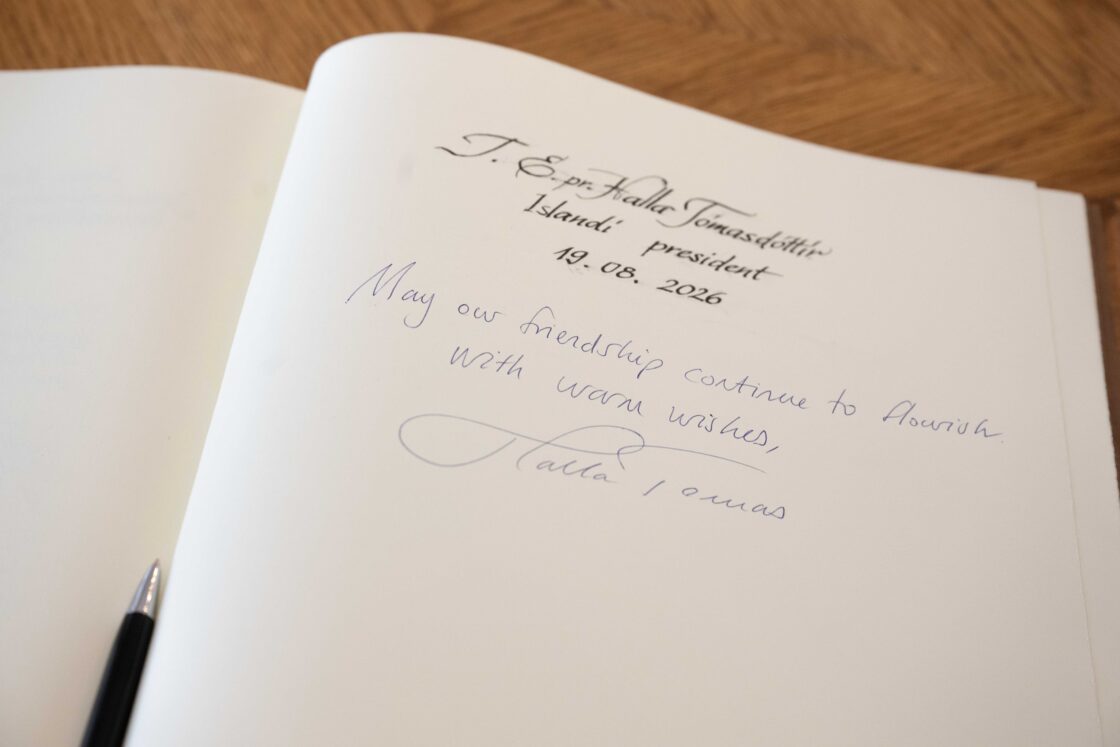 T. E. pr. Halla Tómasdóttir
Islandi president
19. 08. 2026
May our friendship continue to flourish.
With warm wishes,
Halla Tomas